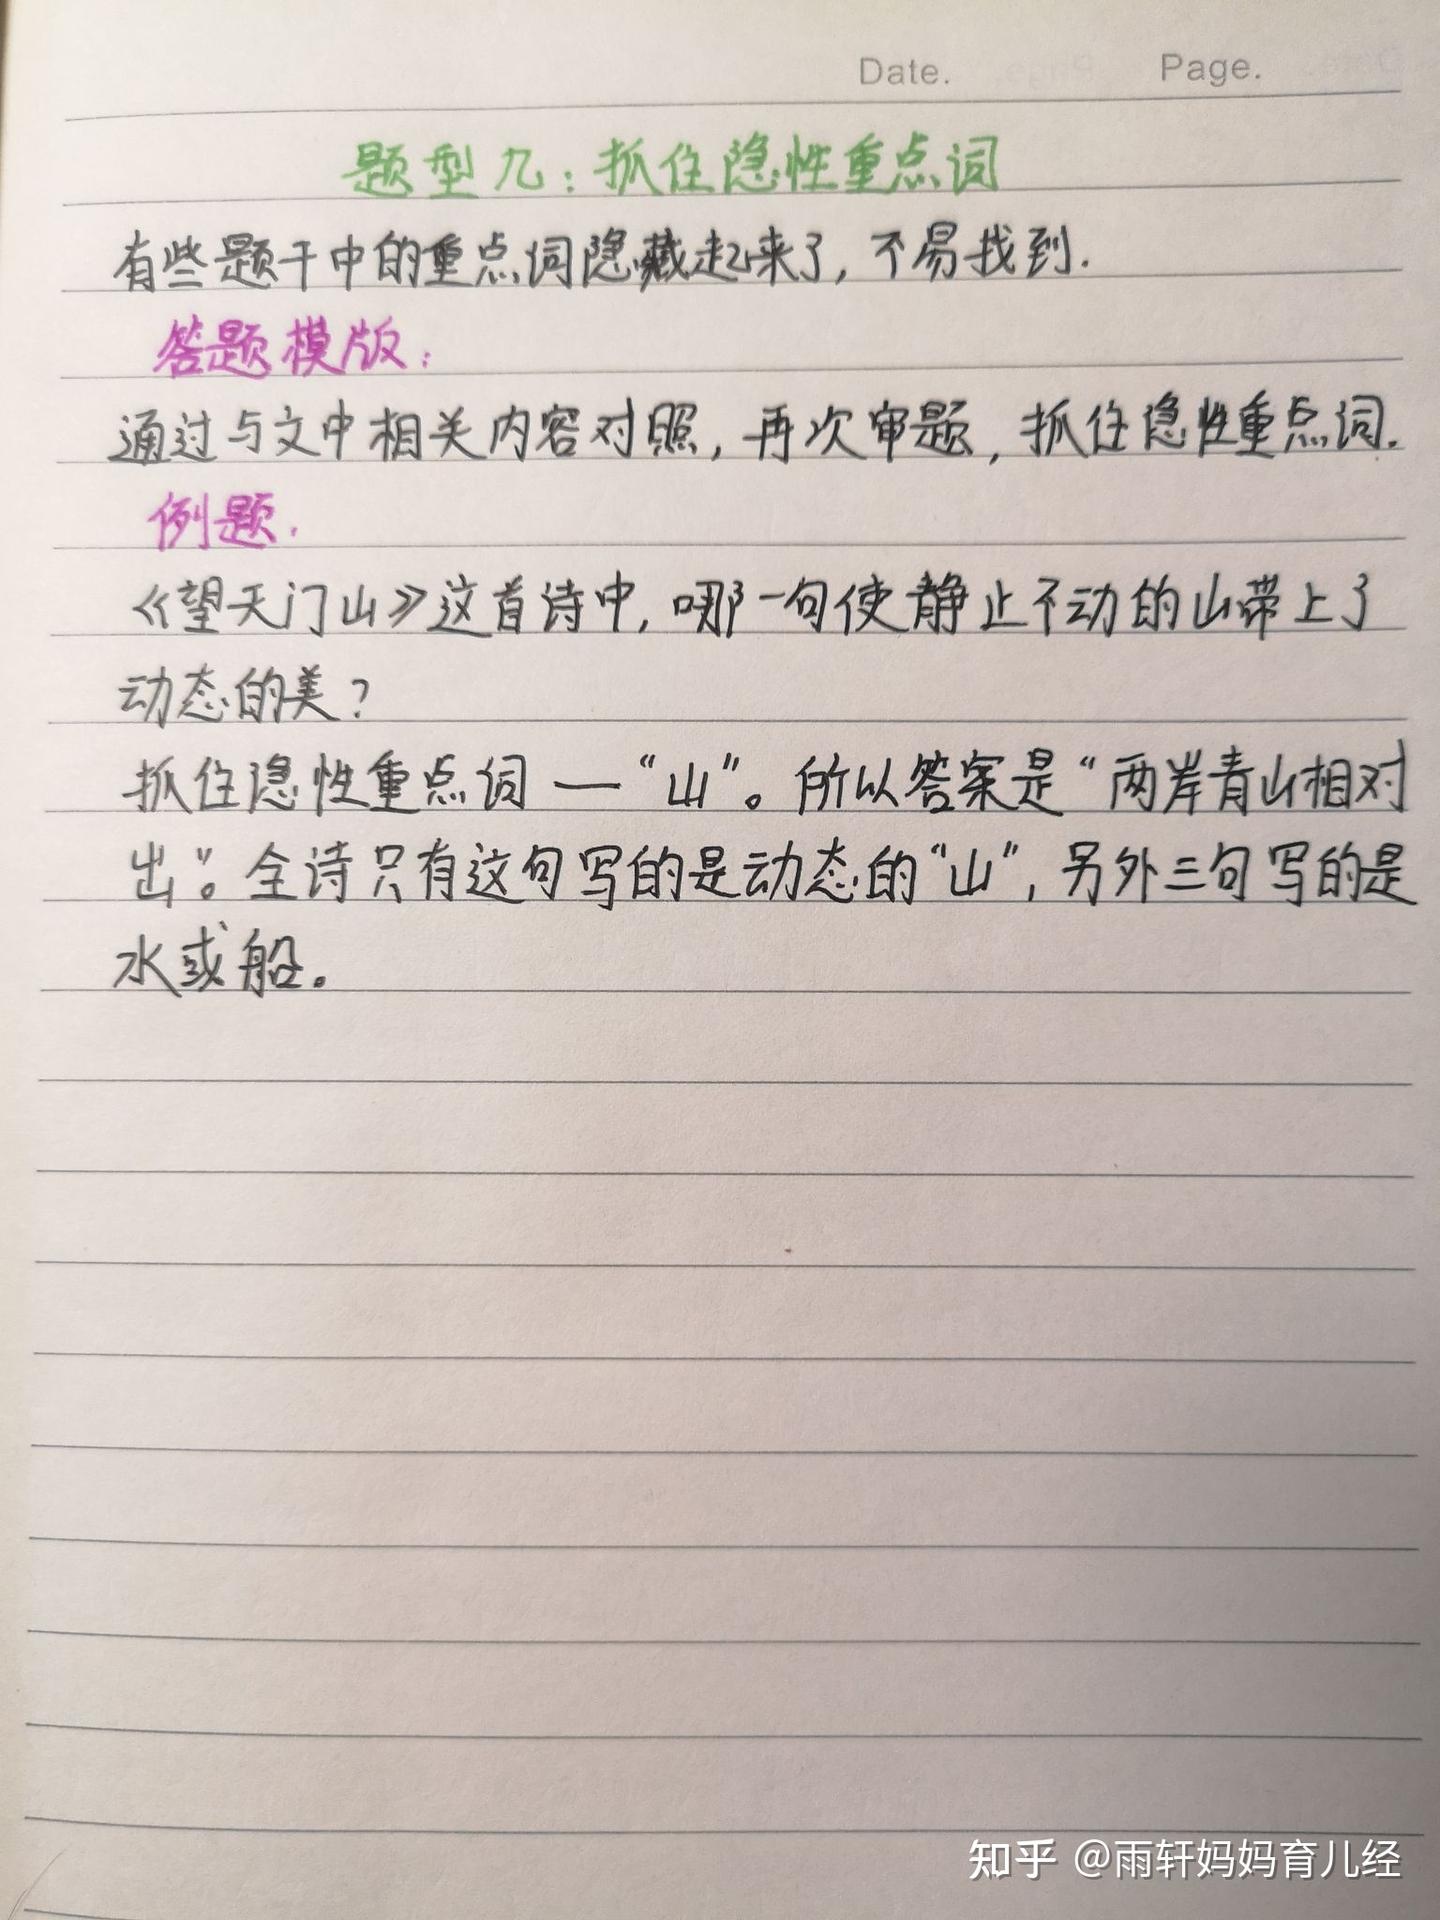 Date. Page.
题型九：抓住隐性重点词
有些题干中的重点词隐藏起来了，不易找到.
答题模版：
通过与文中相关内容对照，再次审题，抓住隐性重点词.
例题.
《望天门山》这首诗中，哪一句使静止不动的山带上了
动态的美？
抓住隐性重点词 — “山”。所以答案是“两岸青山相对
出”。全诗只有这句写的是动态的“山”，另外三句写的是
水或船。
知乎 @雨轩妈妈育儿经